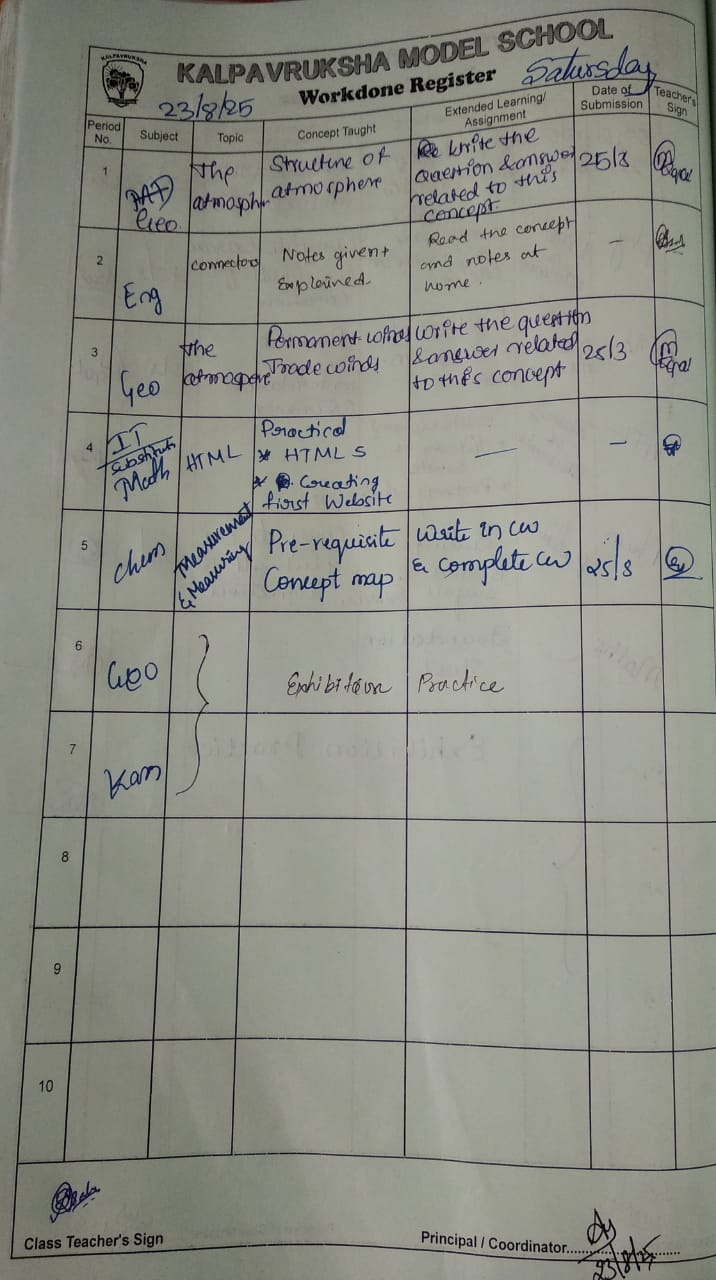 KALPAVRUKSHA
KALPAVRUKSHA MODEL SCHOOL
Workdone Register
Satursday
23/8/25
Period No.
Subject
Topic
Concept Taught
Extended Learning/ Assignment
Date of Submission
Teacher's Sign
1
Geo.
The
atmosphr
Structure of
atmosphere
Write the
Question & answer
related to this
concept.
25/8
2
Eng
connectors
Notes given +
Explained
Read the concept
and notes at
home.
–
3
Geo
The
atmospere
Permanent winds
Trade winds
Write the question
& answer related
to this concept
25/8
4
IT
Substitute
Math
HTML
Practical
* HTML 5
* Creating
first Website
—
–
5
chem
Measurement
& Measuring
Pre-requisite
Concept map
Write in cw
& complete cw
25/8
6
Geo
Exhibition Practice
7
Kan
8
9
10
Class Teacher's Sign
Principal / Coordinator....................
23/8/25